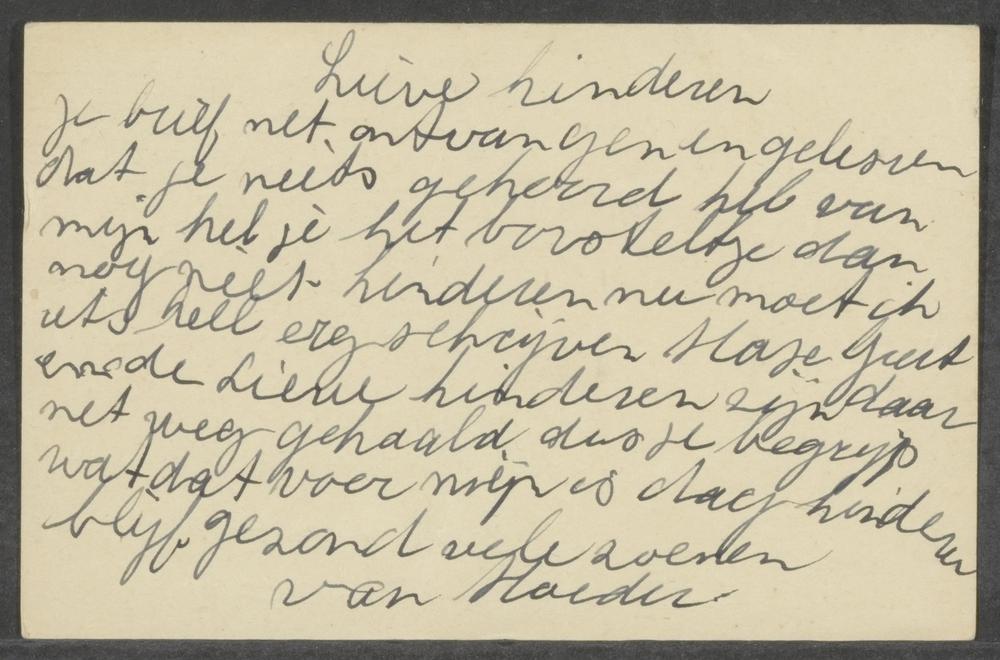 Lieve kinderen
je brief net ontvangen en gelesen
dat je niets gehoord heb van
mijn heb je het borsteltje dan
nog niet. kinderen nu moet ik
iets heel erg schrijven Gust
en de Lieve kinderen zijn daar
net weg gehaald dus je begrijp
wat dat voer mijn is dag kinderen
blijf gezond vele zoenen
van Moeder.